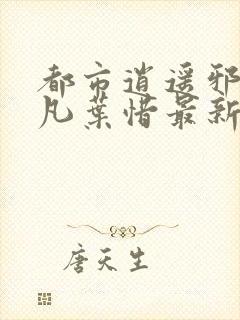 都市逍遥邪
凡叶惜最新
唐天生